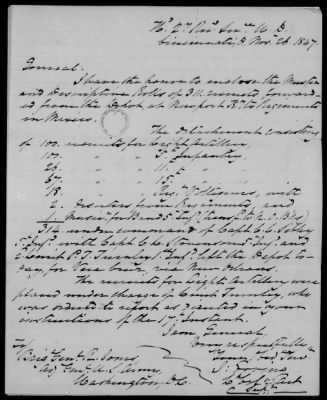 Cincinnati, O. Nov. 26 1847.
General:
I have the honor to enclose the Muster
and Descriptive Rolls of 311 recruits, forward-
ed from the Depot at Newport Ky to Regiments
in Mexico.
The detachment consisting
of 100. recruits for Light Artillery
100. " " Infantry
" " 11. "
" " 15. "
18. " " Volunteers, with
2. deserters from Regiments, and
1. Musician
314 under command of Capt. C. C. Sibley
5" Inf. with Capt. C. L. Stevenson 5" Inf. and
Lieut. P. T. Turnley 1" Inf. left the Depot to-
day, for Vera Cruz, via New Orleans.
The recruits for Light Artillery were
placed under charge of Lieut Turnley, who
was ordered to report as directed in your
instructions of the 17" instant.
I am General
Very respectfully
Your Obd. Servt.
To
Brig Genl. R. Jones
Adj. Genl. U. S. Army
Washington D. C.